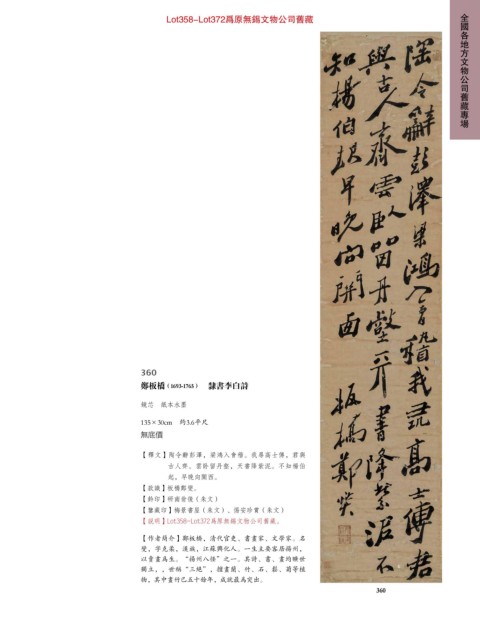 Lot358-Lot372爲原無錫文物公司舊藏
全國各地方文物公司舊藏專場
陶令辭彭澤梁鴻入會稽我尋高士傳君
與古人齊雲臥留丹壑天書降紫泥不
知楊伯起早晚向關西
板橋鄭燮
360
鄭板橋（1693-1765） 隸書李白詩
鏡芯 紙本水墨
135×30cm 約3.6平尺
無底價
【釋文】陶令辭彭澤，梁鴻入會稽。我尋高士傳，君與
古人齊。雲卧留丹壑，天書降紫泥。不知楊伯
起，早晚向關西。
【款識】板橋鄭燮。
【鈐印】（朱文）
【鑒藏印】梅景書屋（朱文）、（朱文）
【說明】Lot358-Lot372爲原無錫文物公司舊藏。
【作者簡介】鄭板橋，清代官吏、書畫家、文學家。名
燮，字克柔，漢族，江蘇興化人。一生主要客居揚州，
以賣畫爲生。“揚州八怪”之一。其詩、書、畫均曠世
獨立，，世稱“三絕”，擅畫蘭、竹、石、松、菊等植
物，其中畫竹已五十餘年，成就最爲突出。
360